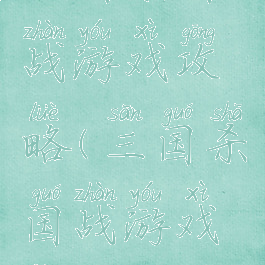 zhàn yóu xì gōng
战游戏攻
lüè sān guó shā
略(三国杀
guó zhàn yóu xì
国战游戏